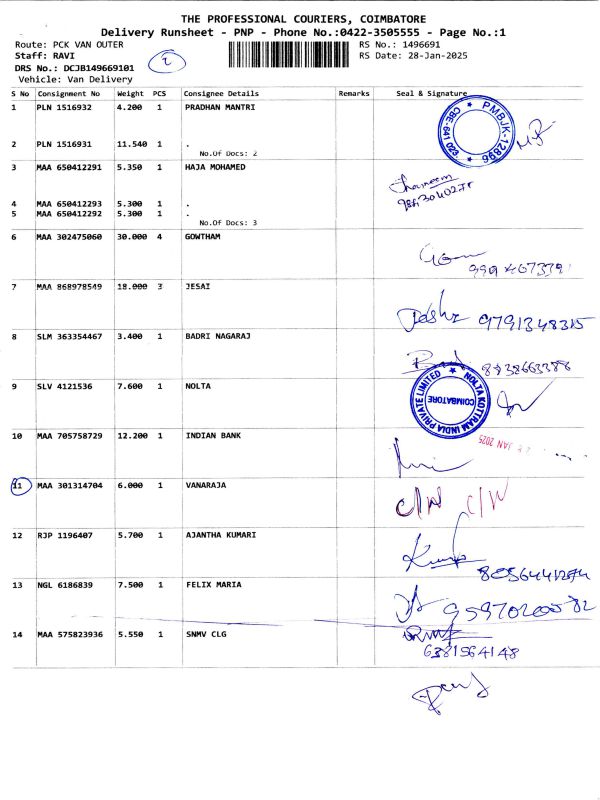 THE PROFESSIONAL COURIERS, COIMBATORE
Delivery Runsheet - PNP - Phone No.:0422-3505555 - Page No.:1
Route: PCK VAN OUTER
Staff: RAVI
DRS No.: DCJB149669101
Vehicle: Van Delivery
2
RS No.: 1496691
RS Date: 28-Jan-2025
S No Consignment No Weight PCS Consignee Details Remarks Seal & Signature
1 PLN 1516932 4.200 1 PRADHAN MANTRI
PMBJK-12896
CBE-641 023
2 PLN 1516931 11.540 1 .
No.Of Docs: 2
3 MAA 650412291 5.350 1 HAJA MOHAMED
4 MAA 650412293 5.300 1 .
5 MAA 650412292 5.300 1 .
No.Of Docs: 3
6 MAA 302475060 30.000 4 GOWTHAM
7 MAA 868978549 18.000 3 JESAI
9791348315
8 SLM 363354467 3.400 1 BADRI NAGARAJ
9 SLV 4121536 7.600 1 NOLTA
NOLTA KOTTRAM INDIA PRIVATE LIMITED
COIMBATORE
10 MAA 705758729 12.200 1 INDIAN BANK
JAN 2025
11 MAA 301314704 6.000 1 VANARAJA
C/W C/W
12 RJP 1196407 5.700 1 AJANTHA KUMARI
13 NGL 6186839 7.500 1 FELIX MARIA
14 MAA 575823936 5.550 1 SNMV CLG
6381564148